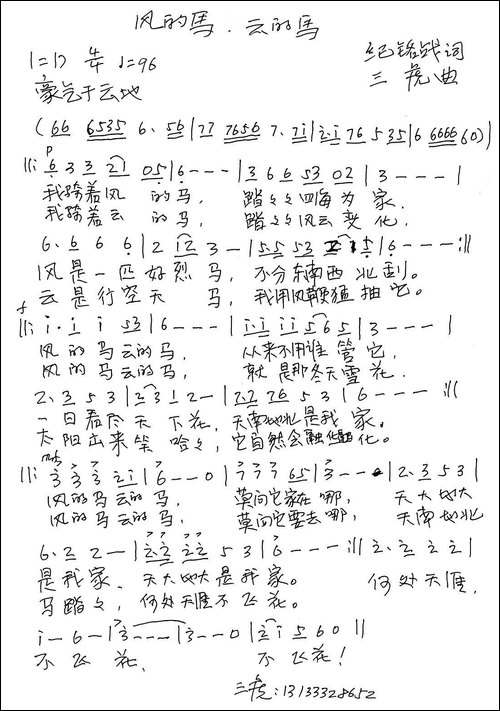 风的馬.云的馬
1=D 4/4 ♩=96 纪铭战词
豪气于云地 三虎曲
(66 6535 6. 56|77 7656 7. 7i|i.i 76 5 35|6 6666 60)
p
|||: 6 3 3 21 05|6---|3 6 6 53 02|3---|
我骑着风 的马, 踏々四海为家.
我骑着云 的马, 踏々风云变化.
6. 6 6 6|2 12 3-|55 53 2 15|6---:|||
风是一匹好烈马, 不分东南西北刮。
云是行空天马, 我用风鞭猛抽它。
f
|||: i. i i 53|6---|i.i ii 5 6 5|3---|
风的马云的马, 从来不用谁管它,
风的马云的马, 就是那冬天雪花.
2. 3 5 3|2 3 1 2-|2.2 76 5 3|6---:|||
一日看尽天下花, 天南地北是我家.
太阳出来笑哈々, 它自然会融化。
|||: 3 3 3 2i|6--0|3 3 3 65|3---|2. 3 5 3|
风的马云的马, 莫问它家在哪, 天大地大
风的马云的马, 莫问它要去哪, 天南地北
6. 2 2-|2.2 22 5 3|6---:||| 2. 2 2 2|
是我家、天大地大是我家。 何处天涯
马踏々, 何处天涯不飞花。
i-6-|3---|3--0|2 i 5 6 0||
不飞花, 不飞花!
三虎:13133328652